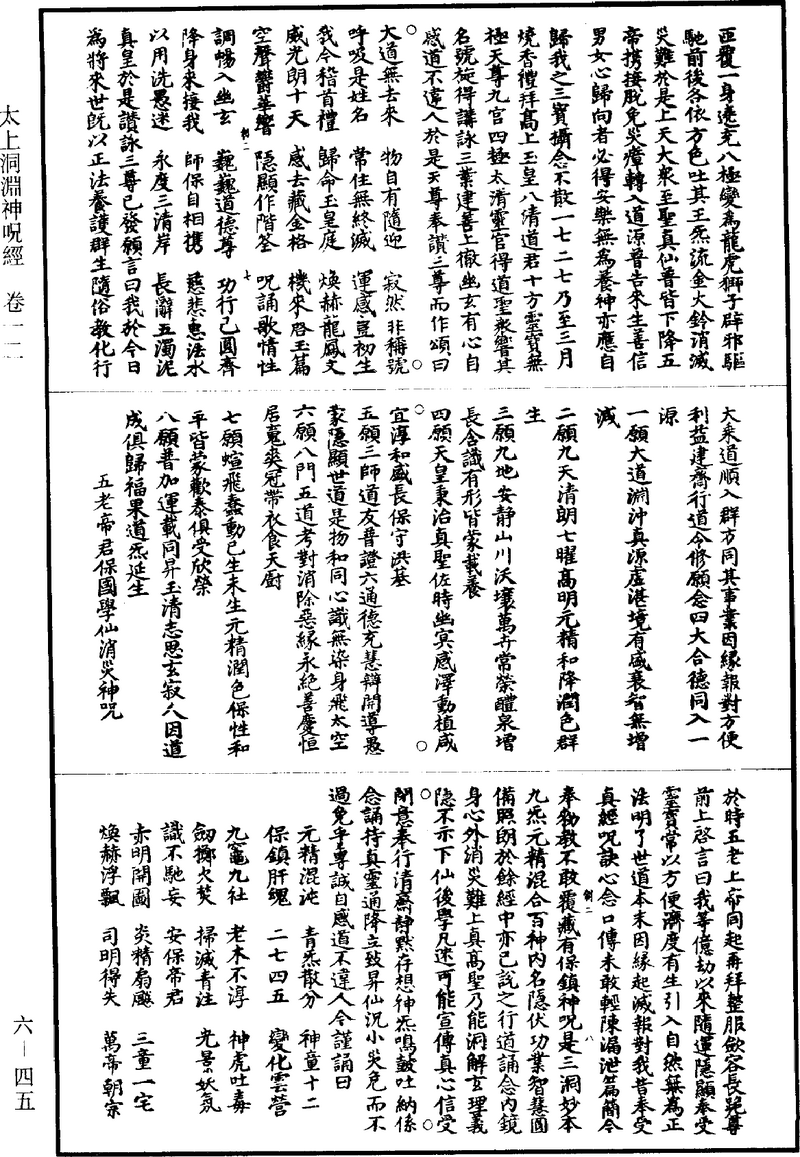 太上洞淵神呪經 卷一二
六－四五
匝覆一身遶充八極變為龍虎獅子辟邪驅
馳前後各依方色吐其王炁流金火鈴消滅
災難於是上天大眾至聖真仙普皆下降五
帝携接脫免災瘴轉入道源普告來生善信
男女心歸向者必得安樂無為養神亦應自
歸我之三寶攝念不散一七二七乃至三月
燒香禮拜高上玉皇八清道君十方靈寶無
極天尊九宮四極太清靈官得道聖眾響其
名號旋得講詠三業建善上徹幽玄有心自
感道不違人於是天尊奉讚三尊而作頌曰
大道無去來 物自有隨迎 寂然非稱號
呼吸是姓名 常住無終滅 運感豈初生
我今稽首禮 歸命玉皇庭 煥赫龍鳳文
威光朗十天 感去藏金格 機來啓玉篇
空聲響華響 隱顯作階筌 呪誦歌情性
調暢入幽玄 巍巍道德尊 功行已圓齊
降身來接我 師保自相携 慈悲惠法水
以用洗愚迷 永度三清岸 長辭五濁泥
真皇於是讚詠三尊已發願言曰我於今日
為將來世既以正法養護群生隨俗教化行
大乘道順入群方同其事業因緣報對方便
利益建齋行道今修願念四大合德同入一
源
一願大道淵沖真源虛湛境有盛衰智無增
減
二願九天清朗七曜高明元精和降潤色群
生
三願九地安静山川沃壤萬卉常榮醴泉增
長含識有形皆蒙載養
四願天皇秉治真聖佐時幽冥感澤動植咸
宜淳和盛長保守洪基
五願三師道友普證六通德充慧辯開導愚
蒙隱顯世道是物和同心識無染身飛太空
六願八門五道考對消除惡緣永絕善慶恒
居竟奕冠帶衣食天廚
七願蝖飛蠢動已生未生元精潤色保性和
平皆蒙歡泰俱受欣榮
八願普加運載同昇玉清志思玄寂八因道
成俱歸福果道炁延生
五老帝君保國學仙消災神呪
於時五老上帝同起再拜整服斂容長跪尊
前上啓言曰我等億劫以來隨運隱顯奉受
靈寶常以方便濟度有生引入自然無為正
法明了世道本末因緣起滅報對我昔奉受
真經呪訣心念口傳未敢輕陳漏泄篇簡今
奉物教不敢覆藏有保鎮神呪是三洞妙本
九炁元精混合百种内名隱伏功業智慧圓
備照朗於餘經中亦已說之行道誦念内鏡
身心外消災難上真高聖乃能洞解玄理義
隱不示下仙後學凡迷可能宣傳真心信受
閉意奉行清齋静默存想神炁鳴鼓吐納係
念誦持真靈通降立致昇仙況小災危而不
過免乎專誠自感道不違人今謹誦曰
元精混沌 青炁散分 神童十二
保鎮肝魂 二七四五 變化雲營
九竈九社 老木不淳 神虎吐毒
劒擲火焚 掃滅青注 光景妖氛
識不馳妄 安保帝君
赤明開圖 炎精扇飈 三童一宅
煥赫浮飄 司明得失 萬帝朝宗